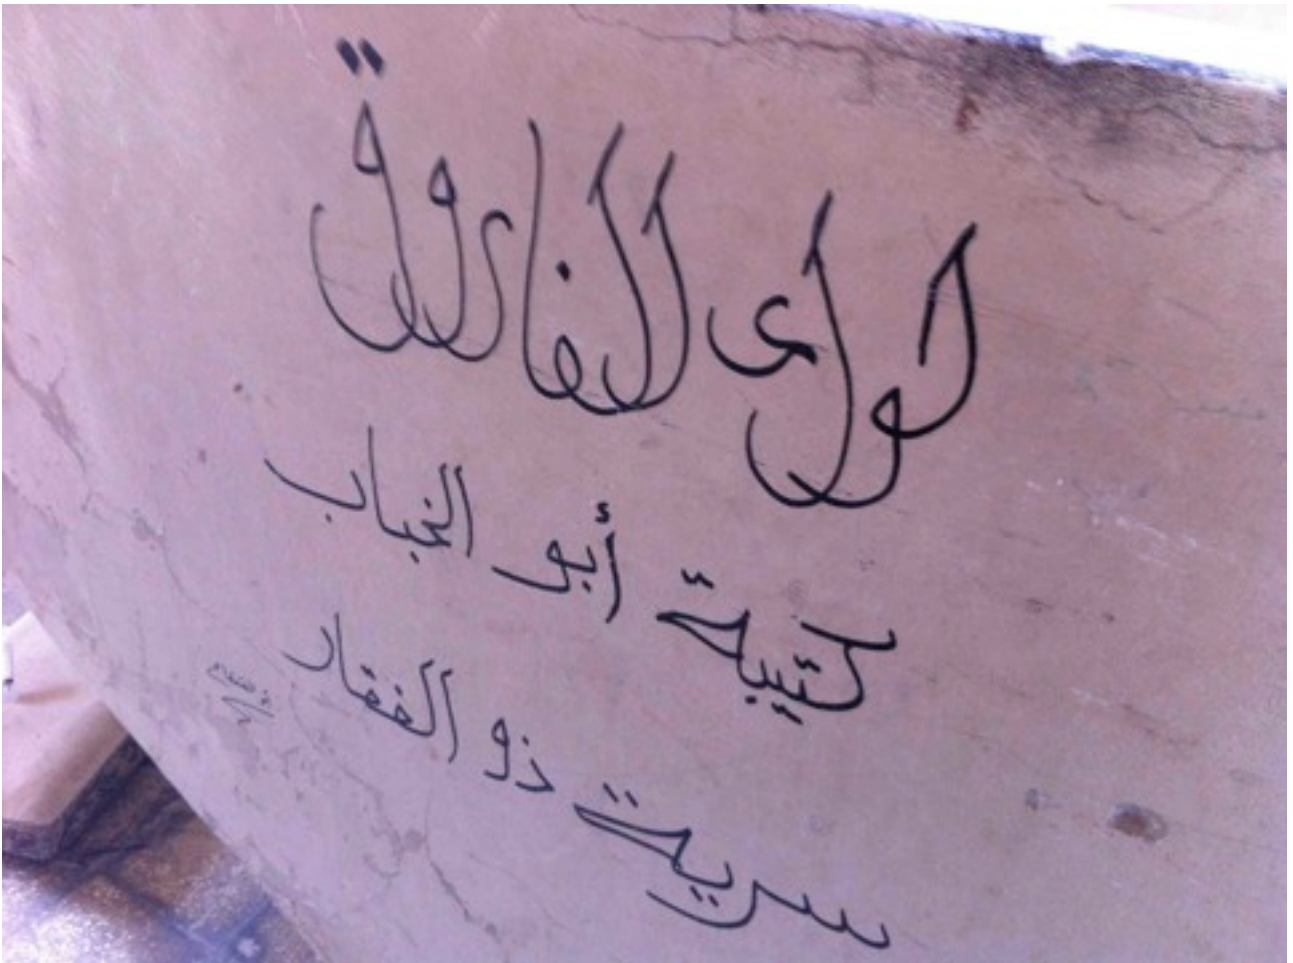 لواء الفاروق
كتيبة أبو الخباب
سرية ذو الفقار